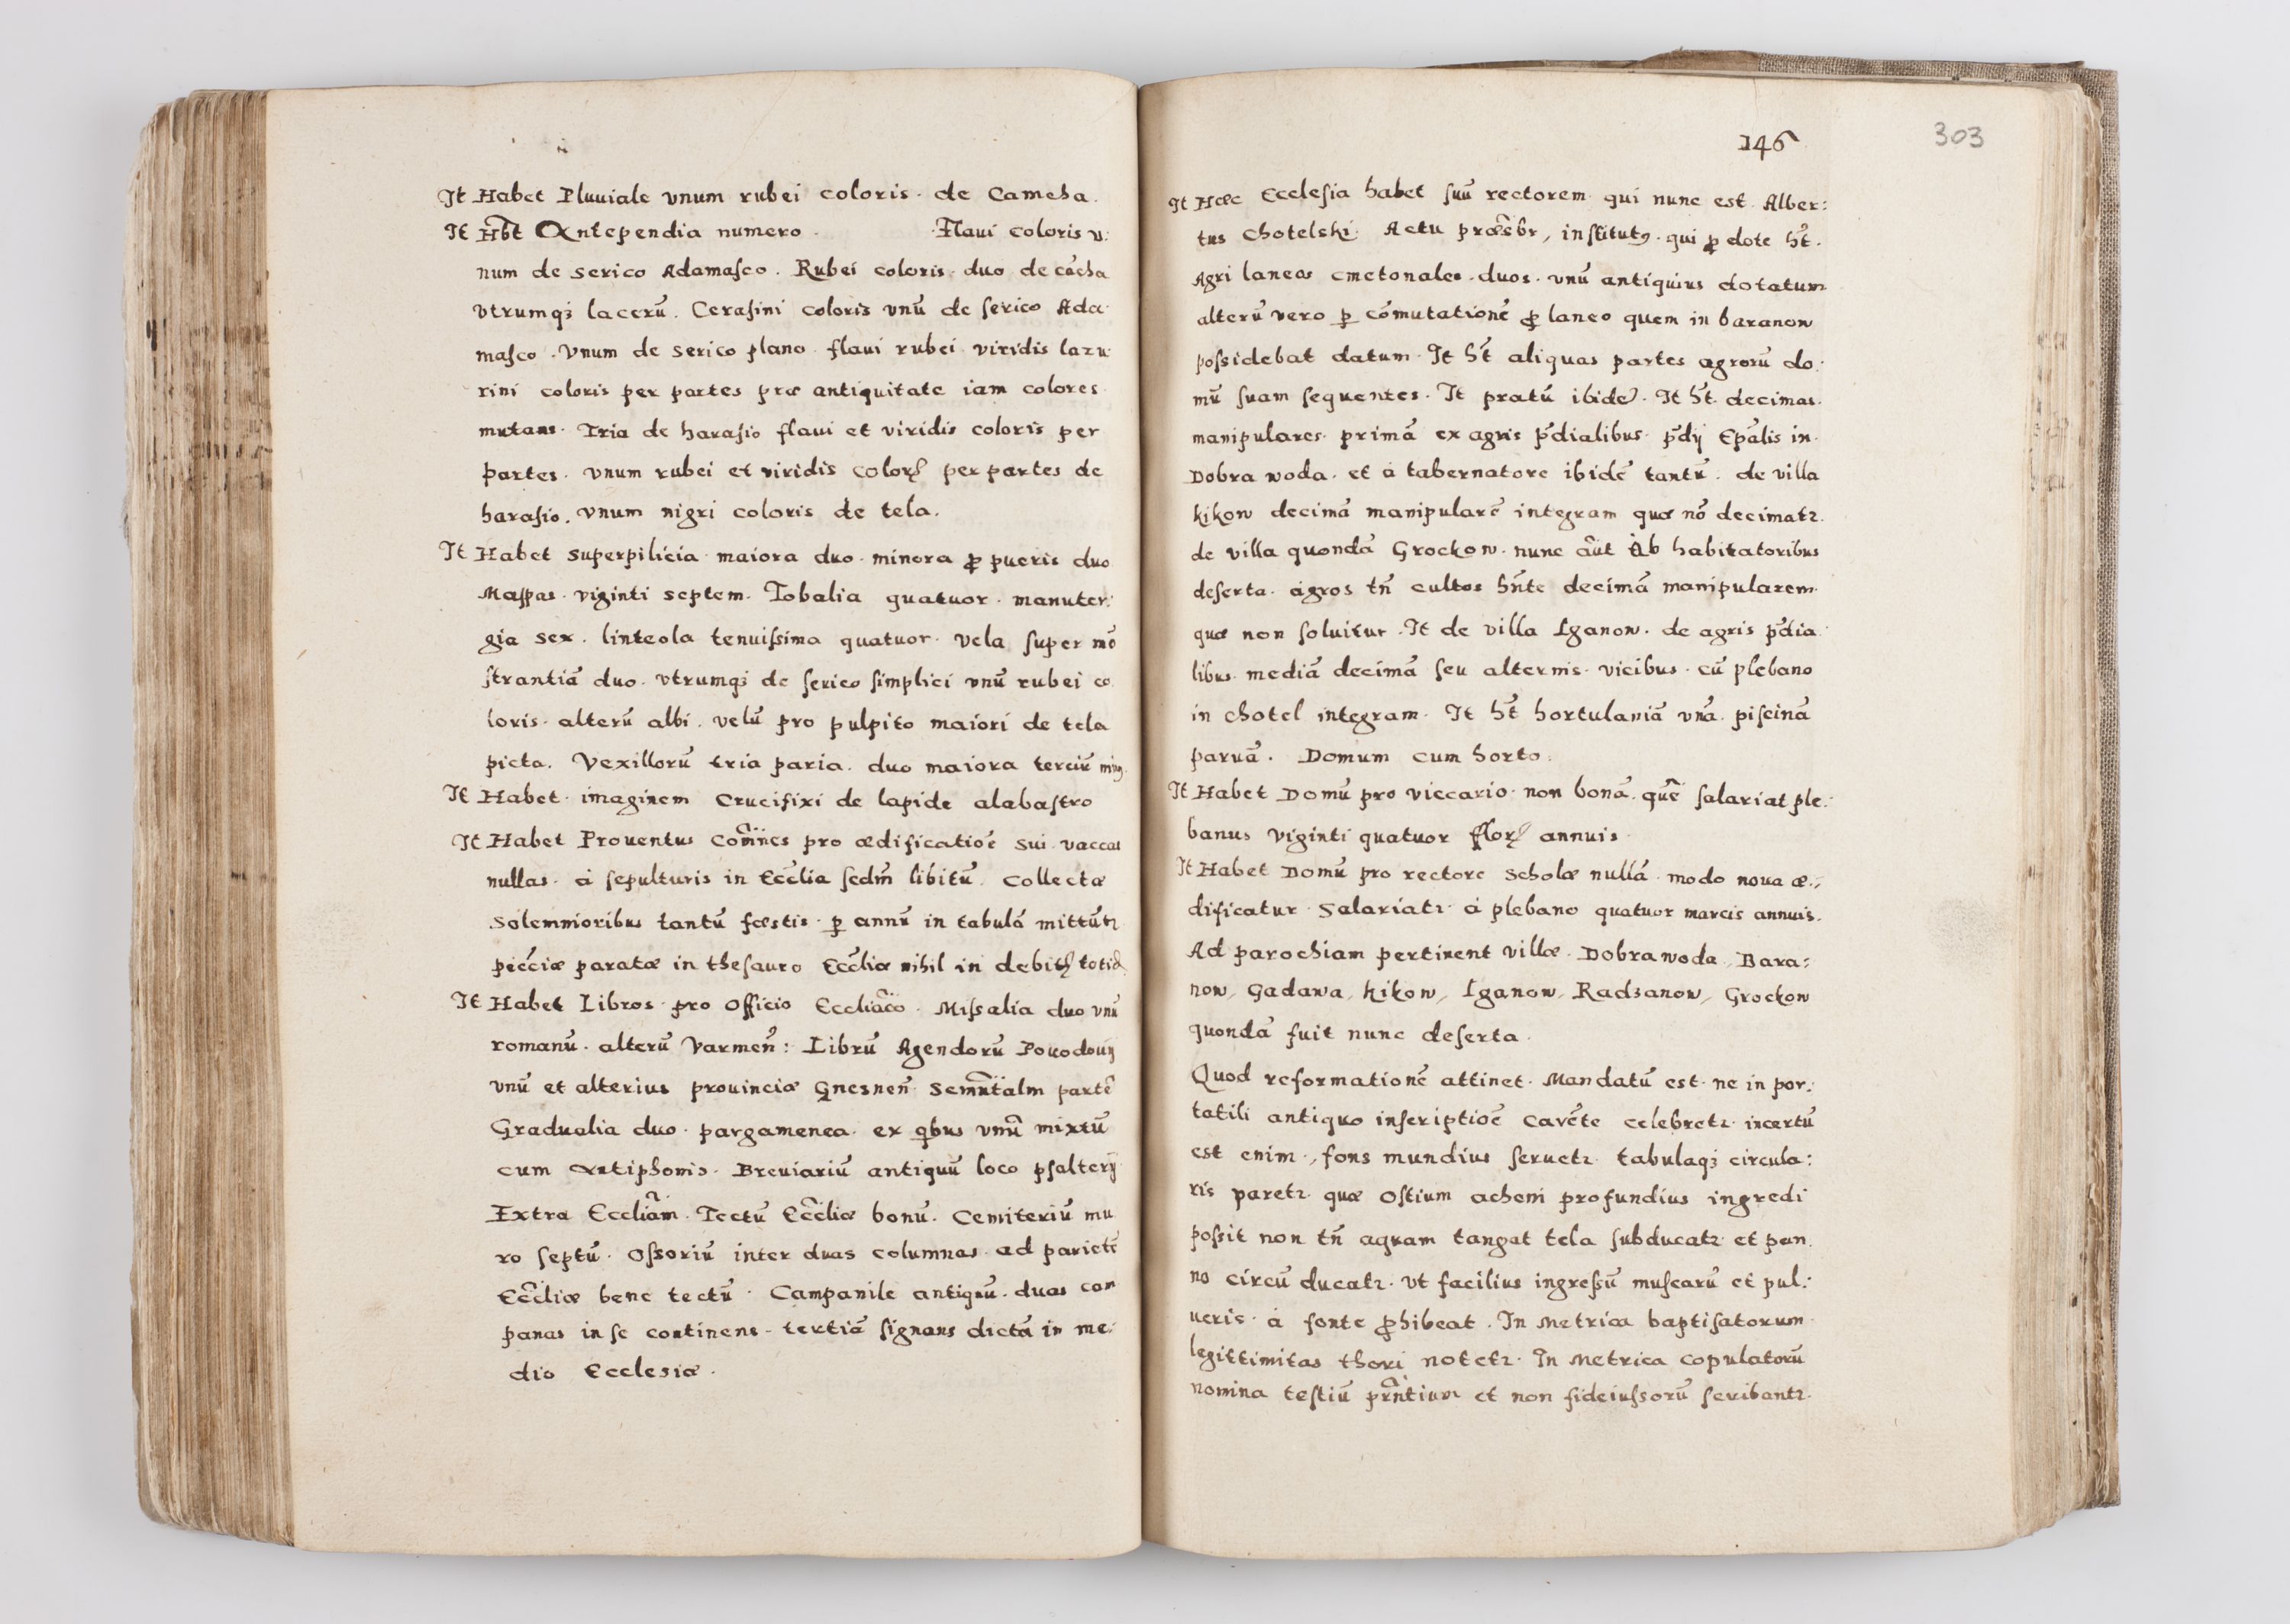 It Habet Pluuiale vnum rubei coloris. de Camcha.
It Hb̃t Antependia numero . . Flaui coloris v:
num de serico Adamaſco. Rubei coloris duo de cãcha
vtrumqꝫ lacerũ. Ceraſini coloris vnũ de ſerico Ada
maſco. Vnum de serico plano flaui rubei viridis lazu
rini coloris per partes præ antiquitate iam colores
mutans. Tria de haraſio flaui et viridis coloris per
partes. vnum rubei et viridis colorꝭ per partes de
haraſio. vnum nigri coloris de tela.
It Habet superpilicia maiora duo. minora ꝓ pueris duo
Mappas. viginti septem. Tobalia quatuor. manuter:
gia sex. linteola tenuiſsima quatuor. vela ſuper mõ
ſtrantiã duo. vtrumqꝫ de ſerico ſimplici vnũ rubei co
loris. alterũ albi. velũ pro pulpito maiori de tela
picta. Vexillorũ tria paria. duo maiora terciũ minꝰ
It Habet. imaginem Crucifixi de lapide alabaſtro
It Habet Prouentus Com̃nes pro ædificatiõe sui vaccas
nullas. á ſepulturis in Eccl̃ia ſcdm̃ libitũ. Collectæ
Solemnioribus tantũ fæstis. ꝑ annũ in tabulã mittũtꝛ
pecc̃iæ paratæ in theſauro Eccl̃iæ nihil in debitꝭ totid̃.
It Habet Libros pro Officio Eccliãco. Miſsalia duo vnũ
romanũ. alterũ Varmeñ: Librũ Agendorũ Pouodouij
vnũ et alterius prouinciæ Gnesneñ Semñtalm partẽ
Gradualia duo. pargamenea. ex qbus vnũ mixtũ
cum Antiphonis. Breuiariũ antiquũ loco pſalterij
Extra Eccliãm. Tectũ Eccl̃iæ bonũ. Cemiteriũ mu
ro ſeptũ. Oſsoriũ inter duas columnas ad parietẽ
Eccl̃iæ bene tectũ. Campanile antiquũ. duas cam
panas in ſe continens. tertiã ſignans dictã in me:
dio Ecclesiæ.
146
303
It Hæc Eccleſia habet ſuũ rectorem. qui nunc est Alber:
tus Chotelski. Actu præsbr̃, inſtitutꝰ. qui ꝓ dote h̃t.
Agri laneos cmetonales. duos. vnũ antiquius dotatum
alterũ vero ꝑ cõmutationẽ ꝓ laneo quem in baranow
poſsidebat datum. It h̃t aliquas partes agrorũ do:
mũ ſuam ſequentes. It pratũ ibide). It h̃t decimas.
manipulares. primã ex agris p̃dialibus. p̃dij Ep̃alis in
Dobra woda. et á tabernatore ibidẽ tantũ. de villa
kikow decimã manipularẽ integram quæ nõ decimatꝛ.
de villa quondã Grockow. nunc aũt Ab habitatoribus
deſerta. agros tñ cultos hñte decimã manipularem.
quæ non ſoluitur. It de villa Iganow. de agris p̃dia
libus. mediã decimã ſeu alternis. vicibus. cũ plebano
in Chotel integram. It h̃t hortulaniã vnã. piſcinã
paruã. Domum cum horto.
It Habet Domũ pro viccario. non bonã. quẽ ſalariat ple:
banus viginti quatuor florꝭ annuis.
It Habet Domũ pro rectore scholæ nullã. modo noua æ:
dificatur. Salariatꝛ á plebano quatuor marcis annuis.
Ad parochiam pertinent villæ. Dobrawoda, Bara:
now, Gadawa, kikow, Iganow, Radzanow, Grockow
quondã fuit nunc deſerta.
Quod reformationẽ attinet. Mandatũ est. ne in por:
tatili antiquo inſcriptiõe carẽte celebretꝛ. incertũ
est enim., fons mundius ſeruetꝛ. tabulaqꝫ circula:
ris paretꝛ. quæ oſtium acheni profundius ingredi
poſsit non tñ aquam tangat tela ſubducatꝛ et pan
no circũ ducatꝛ. Vt facilius ingreſsũ muſcarũ et pul:
ueris. á fonte ꝓhibeat. In Metrica baptiſatorum
legittimitas thori notetꝛ. In Metrica copulatorũ
nomina teſtiũ pr̃ntium et non fideiuſsorũ ſcribantꝛ.